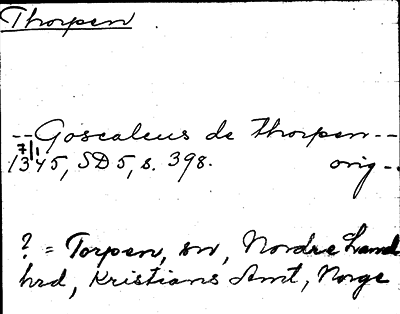 Thorpen
-- Goscalcus de Thorpen --
7/1
1345, SD 5, s. 398. orig --
? = Torpen, sn, Nordre Land
hrd, Kristians Amt, Norge